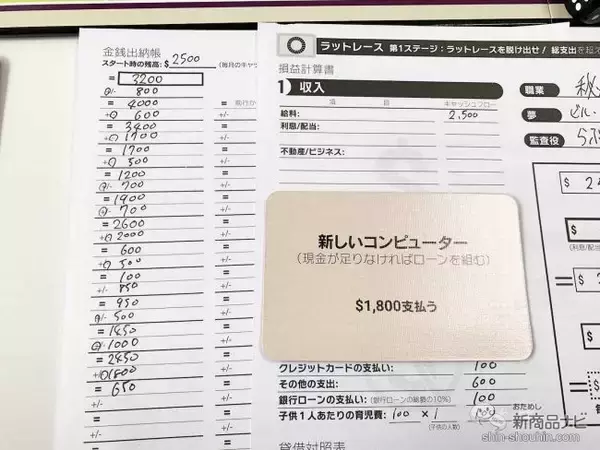 金銭出納帳
スタート時の残高: $ 2500
(毎月のキャッ
= 3200
+/- 800
= 4000
+/- 600
= 3400
+/- 1700
= 1700
+/- 500
= 1200
+/- 700
= 1900
+/- 700
= 2600
+/- 2000
= 600
+/- 500
= 100
+/- 850
= 950
+/- 500
= 1450
+/- 1000
= 2450
+/- 1800
= 650
ラットレース 第1ステージ:ラットレースを脱け出せ! 総支出を超え
損益計算書
1 収入
項 目 キャッシュフロー
給料: 2,500
利息/配当:
不動産/ビジネス:
職業
夢 ビル・
監査役
新しいコンピューター
(現金が足りなければローンを組む)
$1,800支払う
クレジットカードの支払い: 100
その他の支出: 600
銀行ローンの支払い: (銀行ローンの総額の10%) 100
子供1人あたりの育児費: 100 × 1
(子供の人数)
貸借対照表
おためし
新商品ナビ
shin-shouhin.com